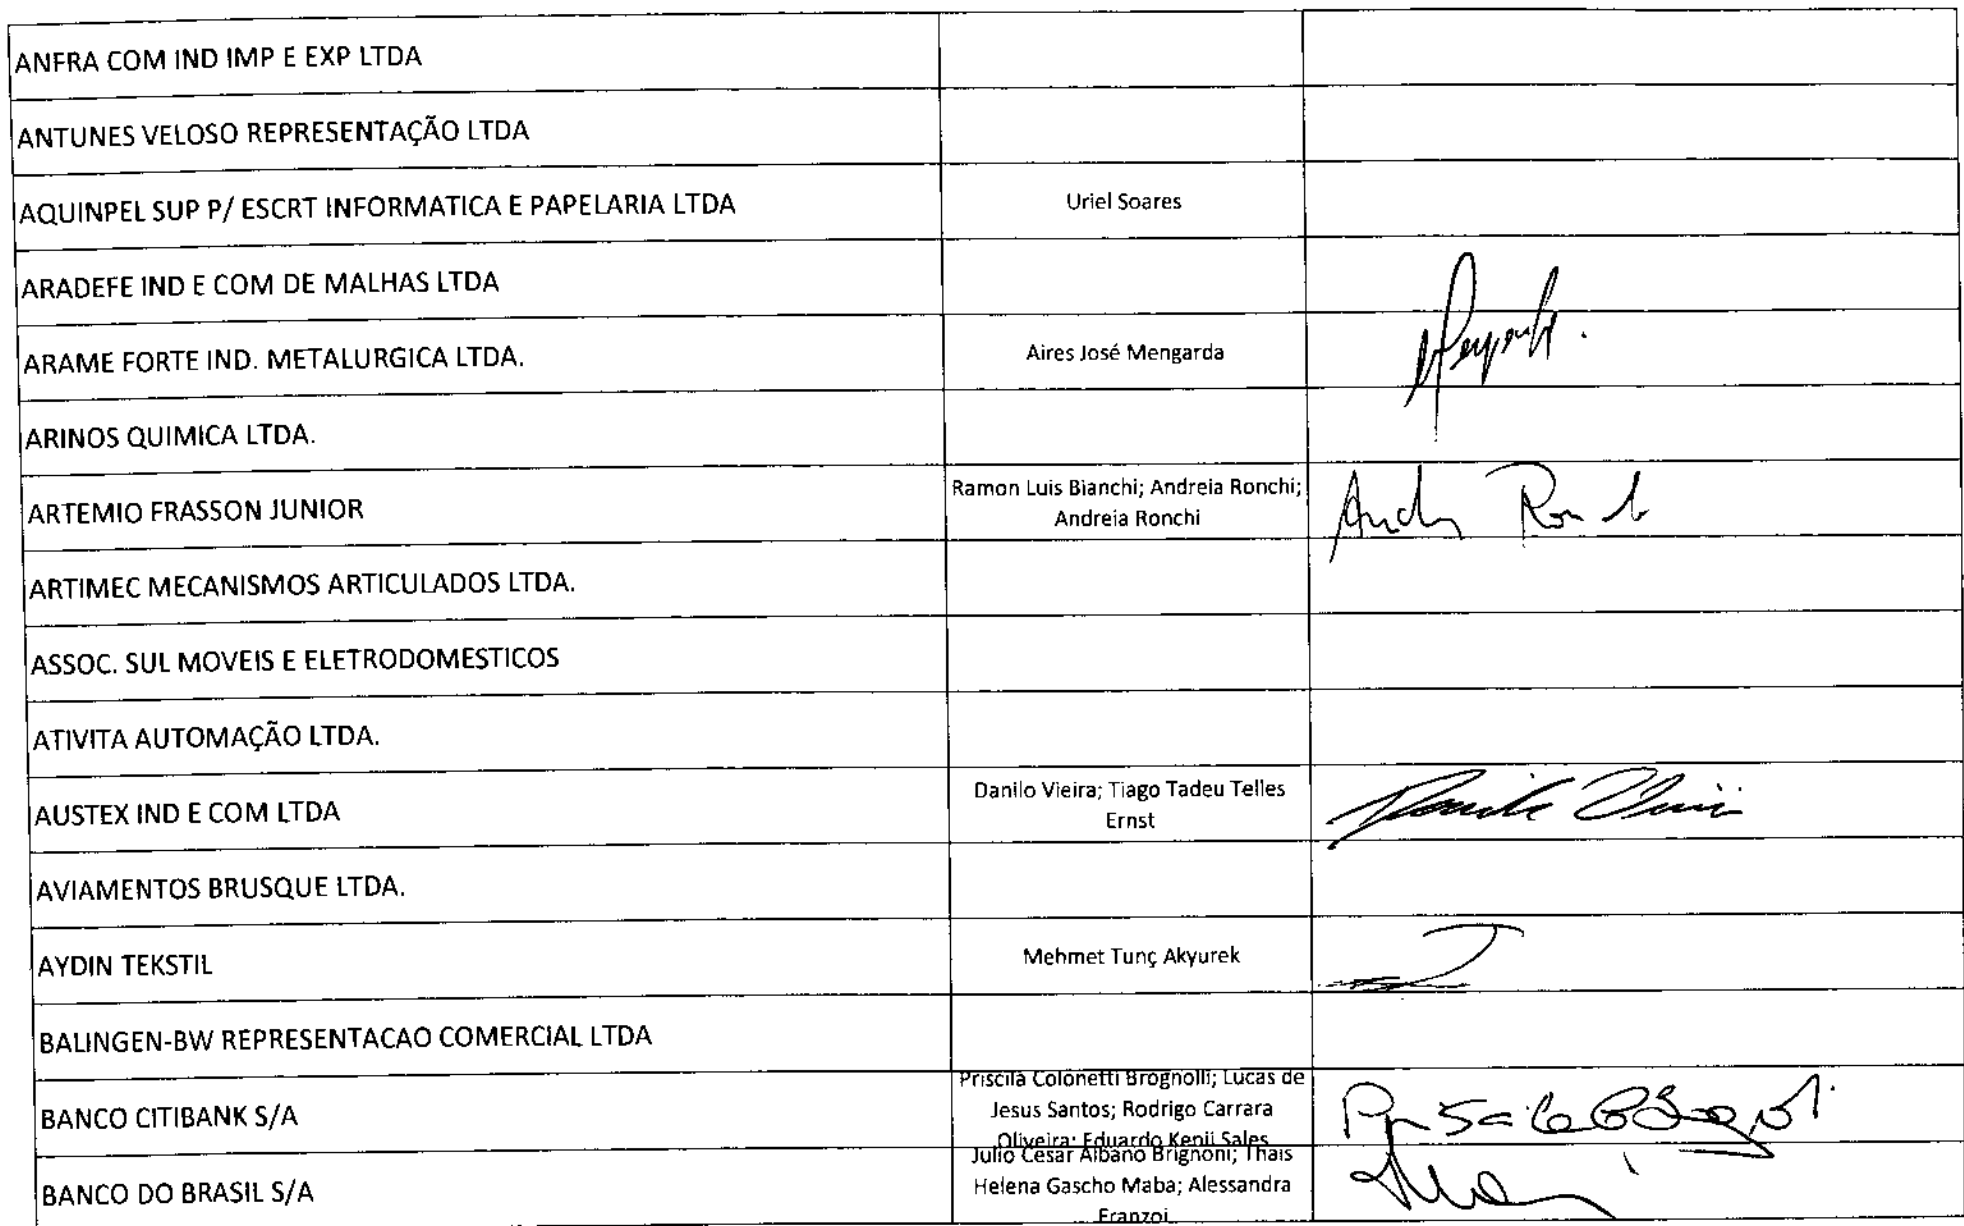 ANFRA COM IND IMP E EXP LTDA
ANTUNES VELOSO REPRESENTAÇÃO LTDA
AQUINPEL SUP P/ ESCRT INFORMATICA E PAPELARIA LTDA
Uriel Soares
ARADEFE IND E COM DE MALHAS LTDA
ARAME FORTE IND. METALURGICA LTDA.
Aires José Mengarda
ARINOS QUIMICA LTDA.
ARTEMIO FRASSON JUNIOR
Ramon Luis Bianchi; Andreia Ronchi;
Andreia Ronchi
ARTIMEC MECANISMOS ARTICULADOS LTDA.
ASSOC. SUL MOVEIS E ELETRODOMESTICOS
ATIVITA AUTOMAÇÃO LTDA.
AUSTEX IND E COM LTDA
Danilo Vieira; Tiago Tadeu Telles
Ernst
AVIAMENTOS BRUSQUE LTDA.
AYDIN TEKSTIL
Mehmet Tunç Akyurek
BALINGEN-BW REPRESENTACAO COMERCIAL LTDA
BANCO CITIBANK S/A
Priscila Colonetti Brognolli; Lucas de
Jesus Santos; Rodrigo Carrara
Oliveira; Eduardo Kenji Sales
BANCO DO BRASIL S/A
Julio Cesar Albano Brignoni; Thais
Helena Gascho Maba; Alessandra
Franzoi